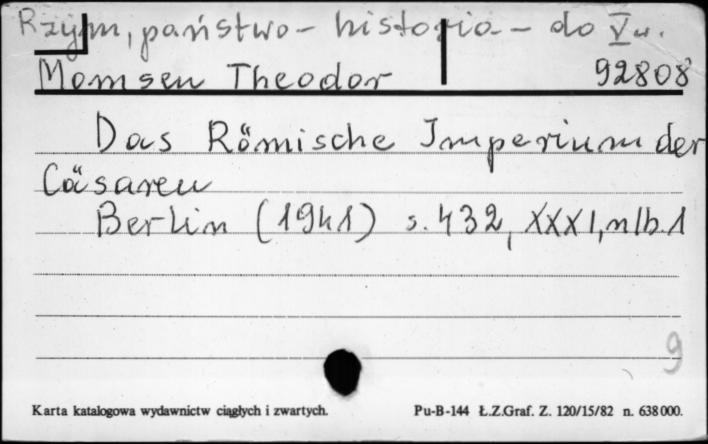 Rzym, państwo - historia - do V w.
Momsen Theodor 92808
Das Römische Imperium der
Cäsaren
Berlin (1941) s. 432, XXXI, nlb. 1
9
Karta katalogowa wydawnictw ciągłych i zwartych. Pu-B-144 Ł.Z.Graf. Z. 120/15/82 n. 638000.